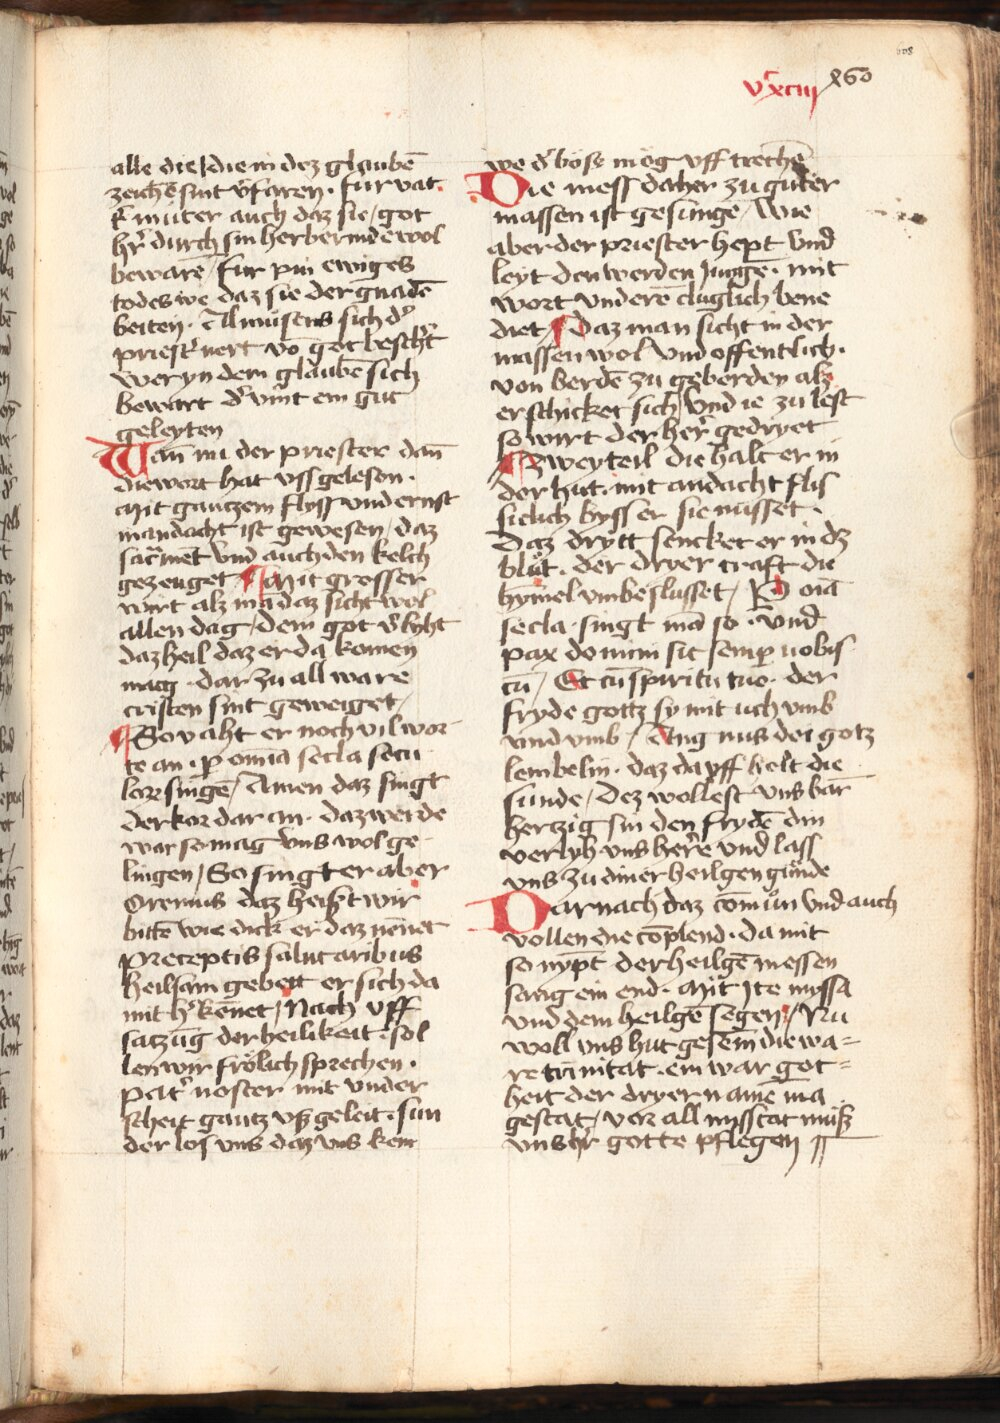 608
vᶜxciii x60
alle die / die in dez glaubē
zeichē sint v̄faren · fur vat
muter auch daz sie / got
hr̄ durch sin herbermde wol
bewarē / fur pin ewiges
todes we daz sie der gnadē
beiten · Almusens sich dˢ
priestˢ nert vō got beschˢt
wer yn dem glauben sich
bewart dˢ vīnt ein gut
geleyten
Wan nu der priester dan
die wort hat vss gelesen ·
Mit gantzem flyss vnd ernst
in andacht ist gewesen / daz
sacr̄ment vnd auch den kelch
gezeuget Mit grosser
wirt alz mā daz sicht wol
allen dag / dem got v̄lyht
daz heil daz er da komen
mag · dar zu all ware
cristen sint geweiget /
So vaht er noch vil wor
te an · p omīa secla secu
lorꝝ singē / Amen daz singt
der kor dar an · daz werde
war so mag vns wol ge
lingen / So singt er aber
Oremus daz heist wir
bittē wie dick er daz nēnet
Preceptis salutaribus
heilsam gebett er sich da
mit hˢ kēnet / Nach vff
satzūg der heilikeit · sol
len wir frölich sprechen ·
Patˢ noster mit vnder
scheit gantz vsz geleit · sun
der los vns daz vns kein
we dˢ böse mög vff trechē
Die mess daher zu guter
massen ist gesunge / Wie
aber der priester hept vnd
leyt den werden jungē · mit
wort vnd erē cluglich bene
diet / Daz man sicht in der
massen wol vnd offentlich ·
von berdē zu geberden alz
er schicket sich / vnd ie zu lest
so wirt der her gedryet
Zwey teil die halt er in
der hut · mit andacht flis
sichch bysz er sie nusset ·
Daz drytt sencket er in dz
blůt · der dryer craft die
hymel vmbeslusset / P oīa
secla · singt mā so · vnd
pax domini sit semp nobis
cū / Et cū spiritu tuo · der
fryde gottz sy mit uch vmb
vnd vmb / Ang nus dei gotz
lembelin · daz da vff helt die
sunde / Dez wollest vns bar
hertzig sin den frydē din
verlyh vns herˢe vnd lass
vns zu diner heilgen gunde
Dar nach daz cōmūn vnd auch
vollen die cōplend · da mit
so nypt der heilgē messen
sang ein end · Mit Ite missa
vnd dem heilgē segen / Nu
woll vns hut gesēin die wa=
re trinitat · ein war got=
heit der dryer namē ma
gestat / vor all misstat musz
vnser gotte pflegen